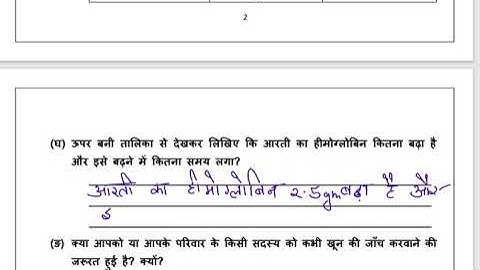 2
(घ) ऊपर बनी तालिका से देखकर लिखिए कि आरती का हीमोग्लोबिन कितना बढ़ा है
और इसे बढ़ने में कितना समय लगा?
आरती का हीमोग्लोबिन 2.5gm बढ़ा है और
इ
(ङ) क्या आपको या आपके परिवार के किसी सदस्य को कभी खून की जाँच करवाने की
जरूरत हुई है? क्यों?